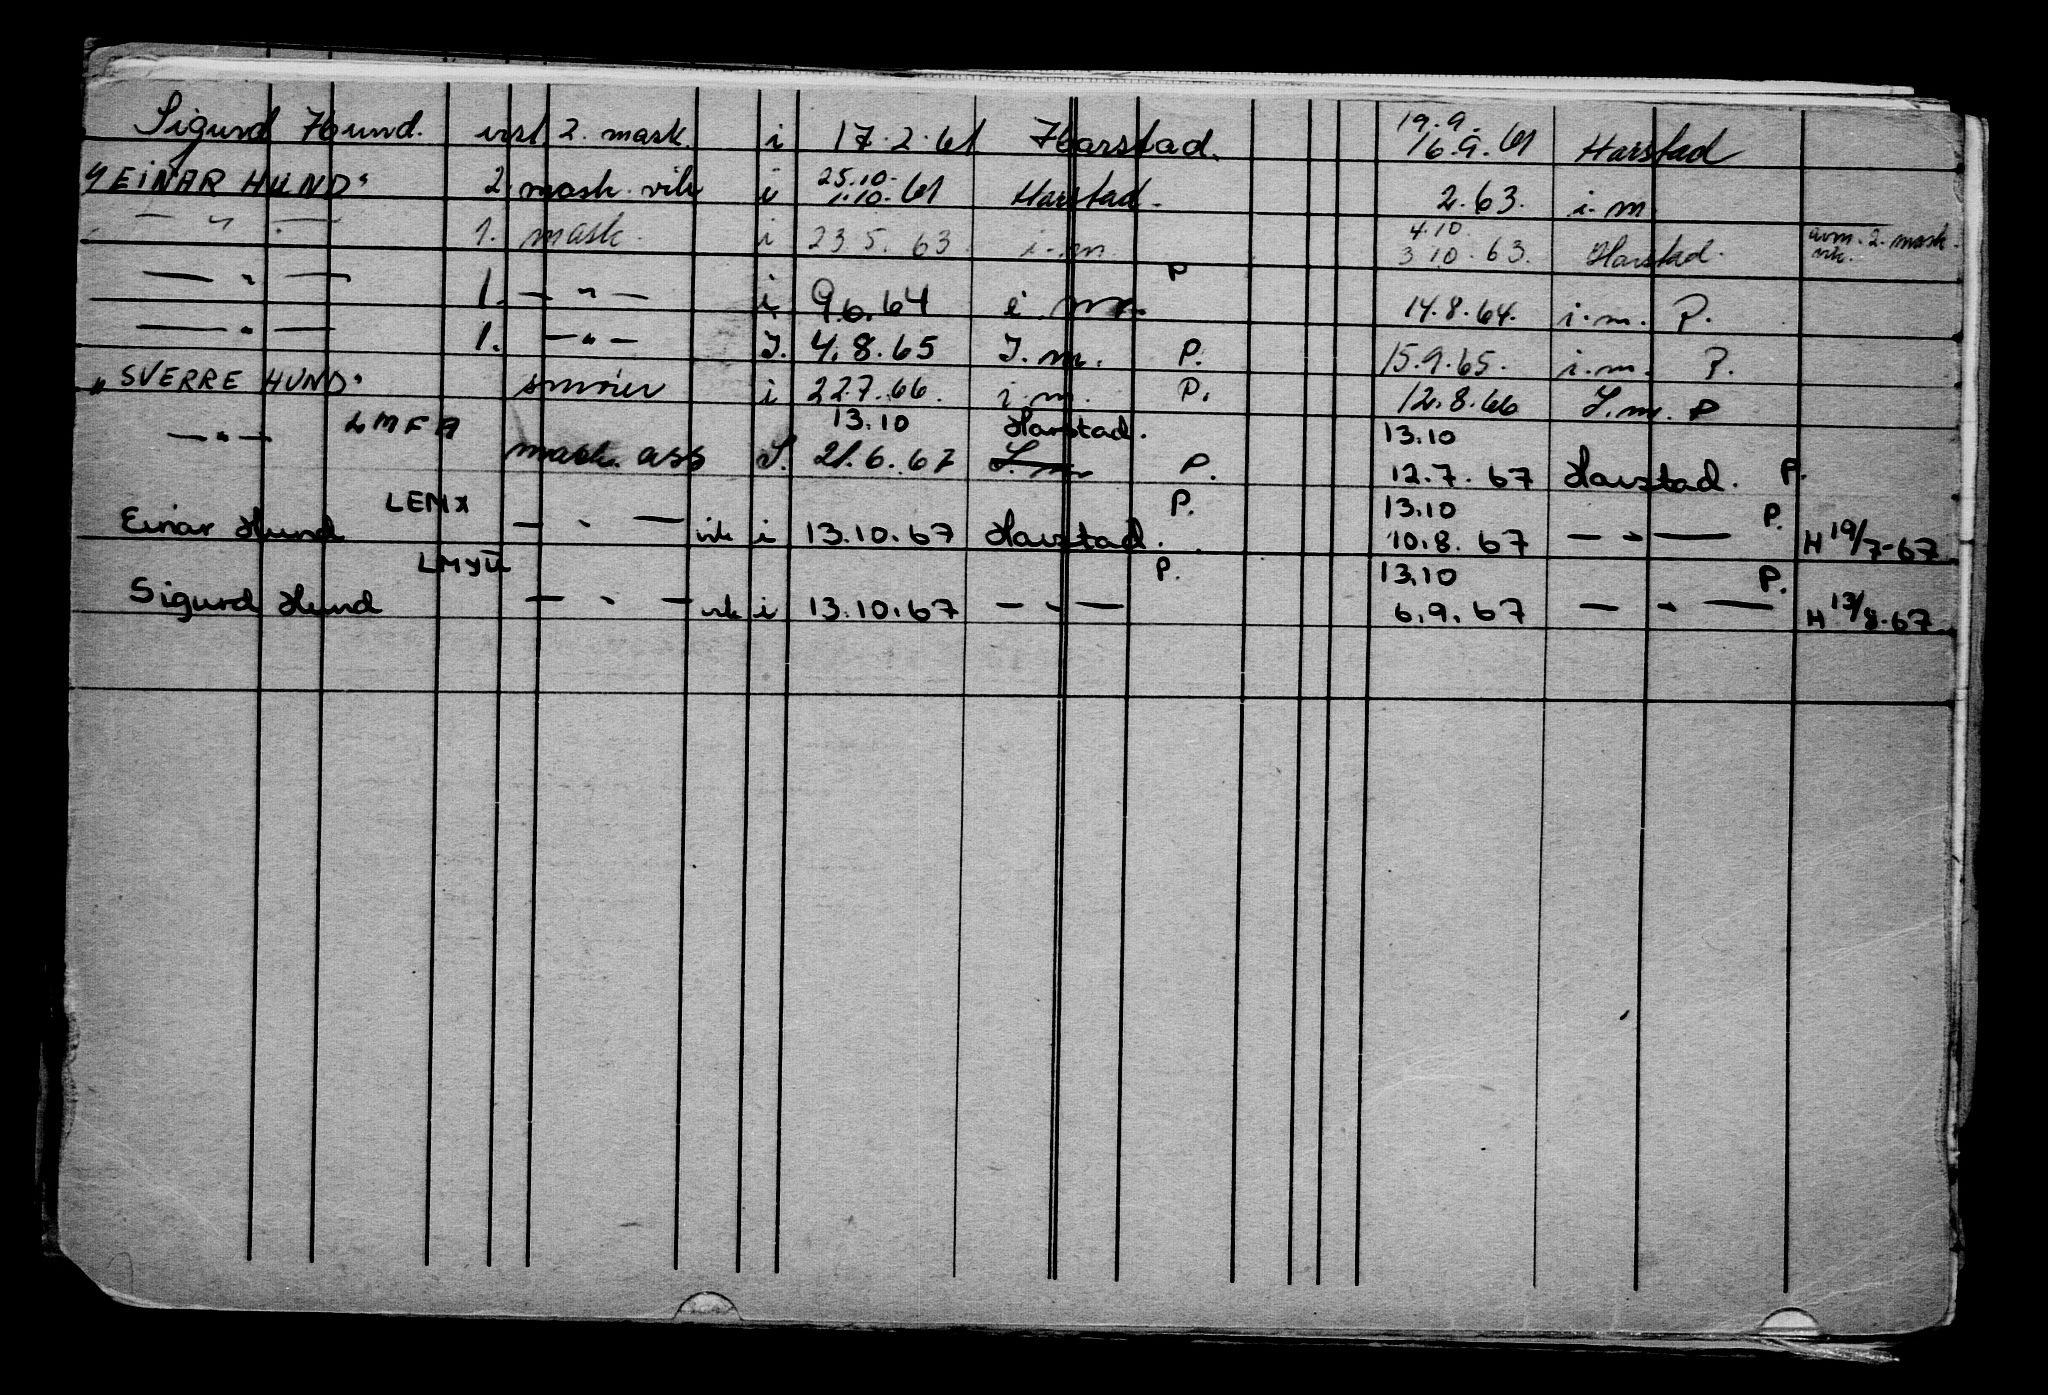 Sigurd Hund. 2. mask. i 17.2.61 Harstad. 19.9. 16.9.61 Harstad
"EINAR HUND" 2. mask. vik i 25.10. 1.10.61 Harstad. 2.63. i.m
— " — 1. mask. i 23.5.63 i.m. 4.10 3.10.63. Harstad. avm. 2. mask. vik.
— " — 1. — " — i 9.6.64 i.m. P 14.8.64. i.m. P.
— " — 1. — " — I. 4.8.65 I.m. P. 15.9.65. i.m. P.
"SVERRE HUND" smører i 22.7.66. i.m. P. 12.8.66 I.m. P
LMFA 13.10 Harstad. 13.10
— " — mask. ass I. 21.6.67 I.m P. 12.7.67 Harstad. P.
LEMX P. 13.10 P.
Einar Hund — " — vik i 13.10.67 Harstad. 10.8.67 — " — H 19/7-67
P. 13.10 P.
Sigurd Hund — " — vik i 13.10.67 — " — 6.9.67 — " — H 13/8-67